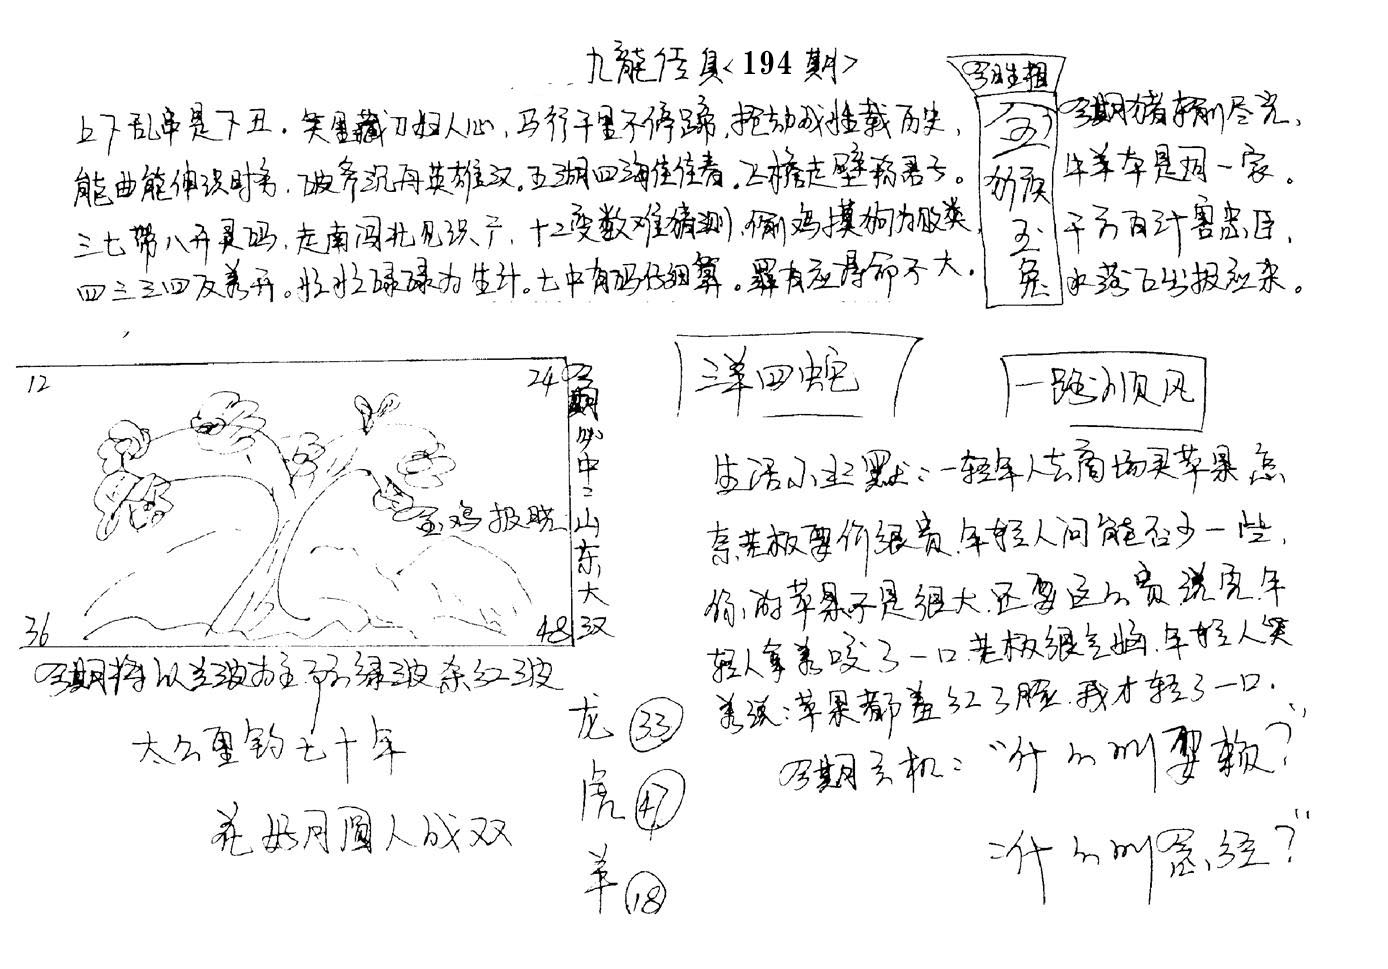 九龍信息<194期>
今期生相
上下乱串是下丑。笑里藏刀妇人心，马行千里不停蹄，抢劫成性载历史，
能曲能伸识时务，破斧沉舟英雄汉。五湖四海佳佳春。飞檐走壁称君子。
三七带八开灵码，走南闯北见识广，十二变数难猜测，偷鸡摸狗为败类，
四三三四反着开。忙忙碌碌为生计。七中有码仔细算。罪有应得命不大。
金
猴
玉
兔
今期猪轿削尽光，
牛羊本是同一家。
千方百计害忠臣，
水落石出报应来。
12
24
36
48
金鸡报晓
今期必中：山东大汉
今期特以兰波为主 防绿波杀红波
太公垂钓七十年
花好月圆人成双
龙 33
虎 47
羊 18
三羊四蛇
一路顺风
生活小幽默：一轻年人去商场买苹果 怎
奈老板要价很贵，年轻人问能否少一些，
你的苹果不是很大，还要这么贵 说完，年
轻人拿着咬了一口，老板很气恼，年轻人笑
着说：苹果都羞红了脸，我才轻了一口。
今期玄机："什么叫耍赖？"
"什么叫念经？"